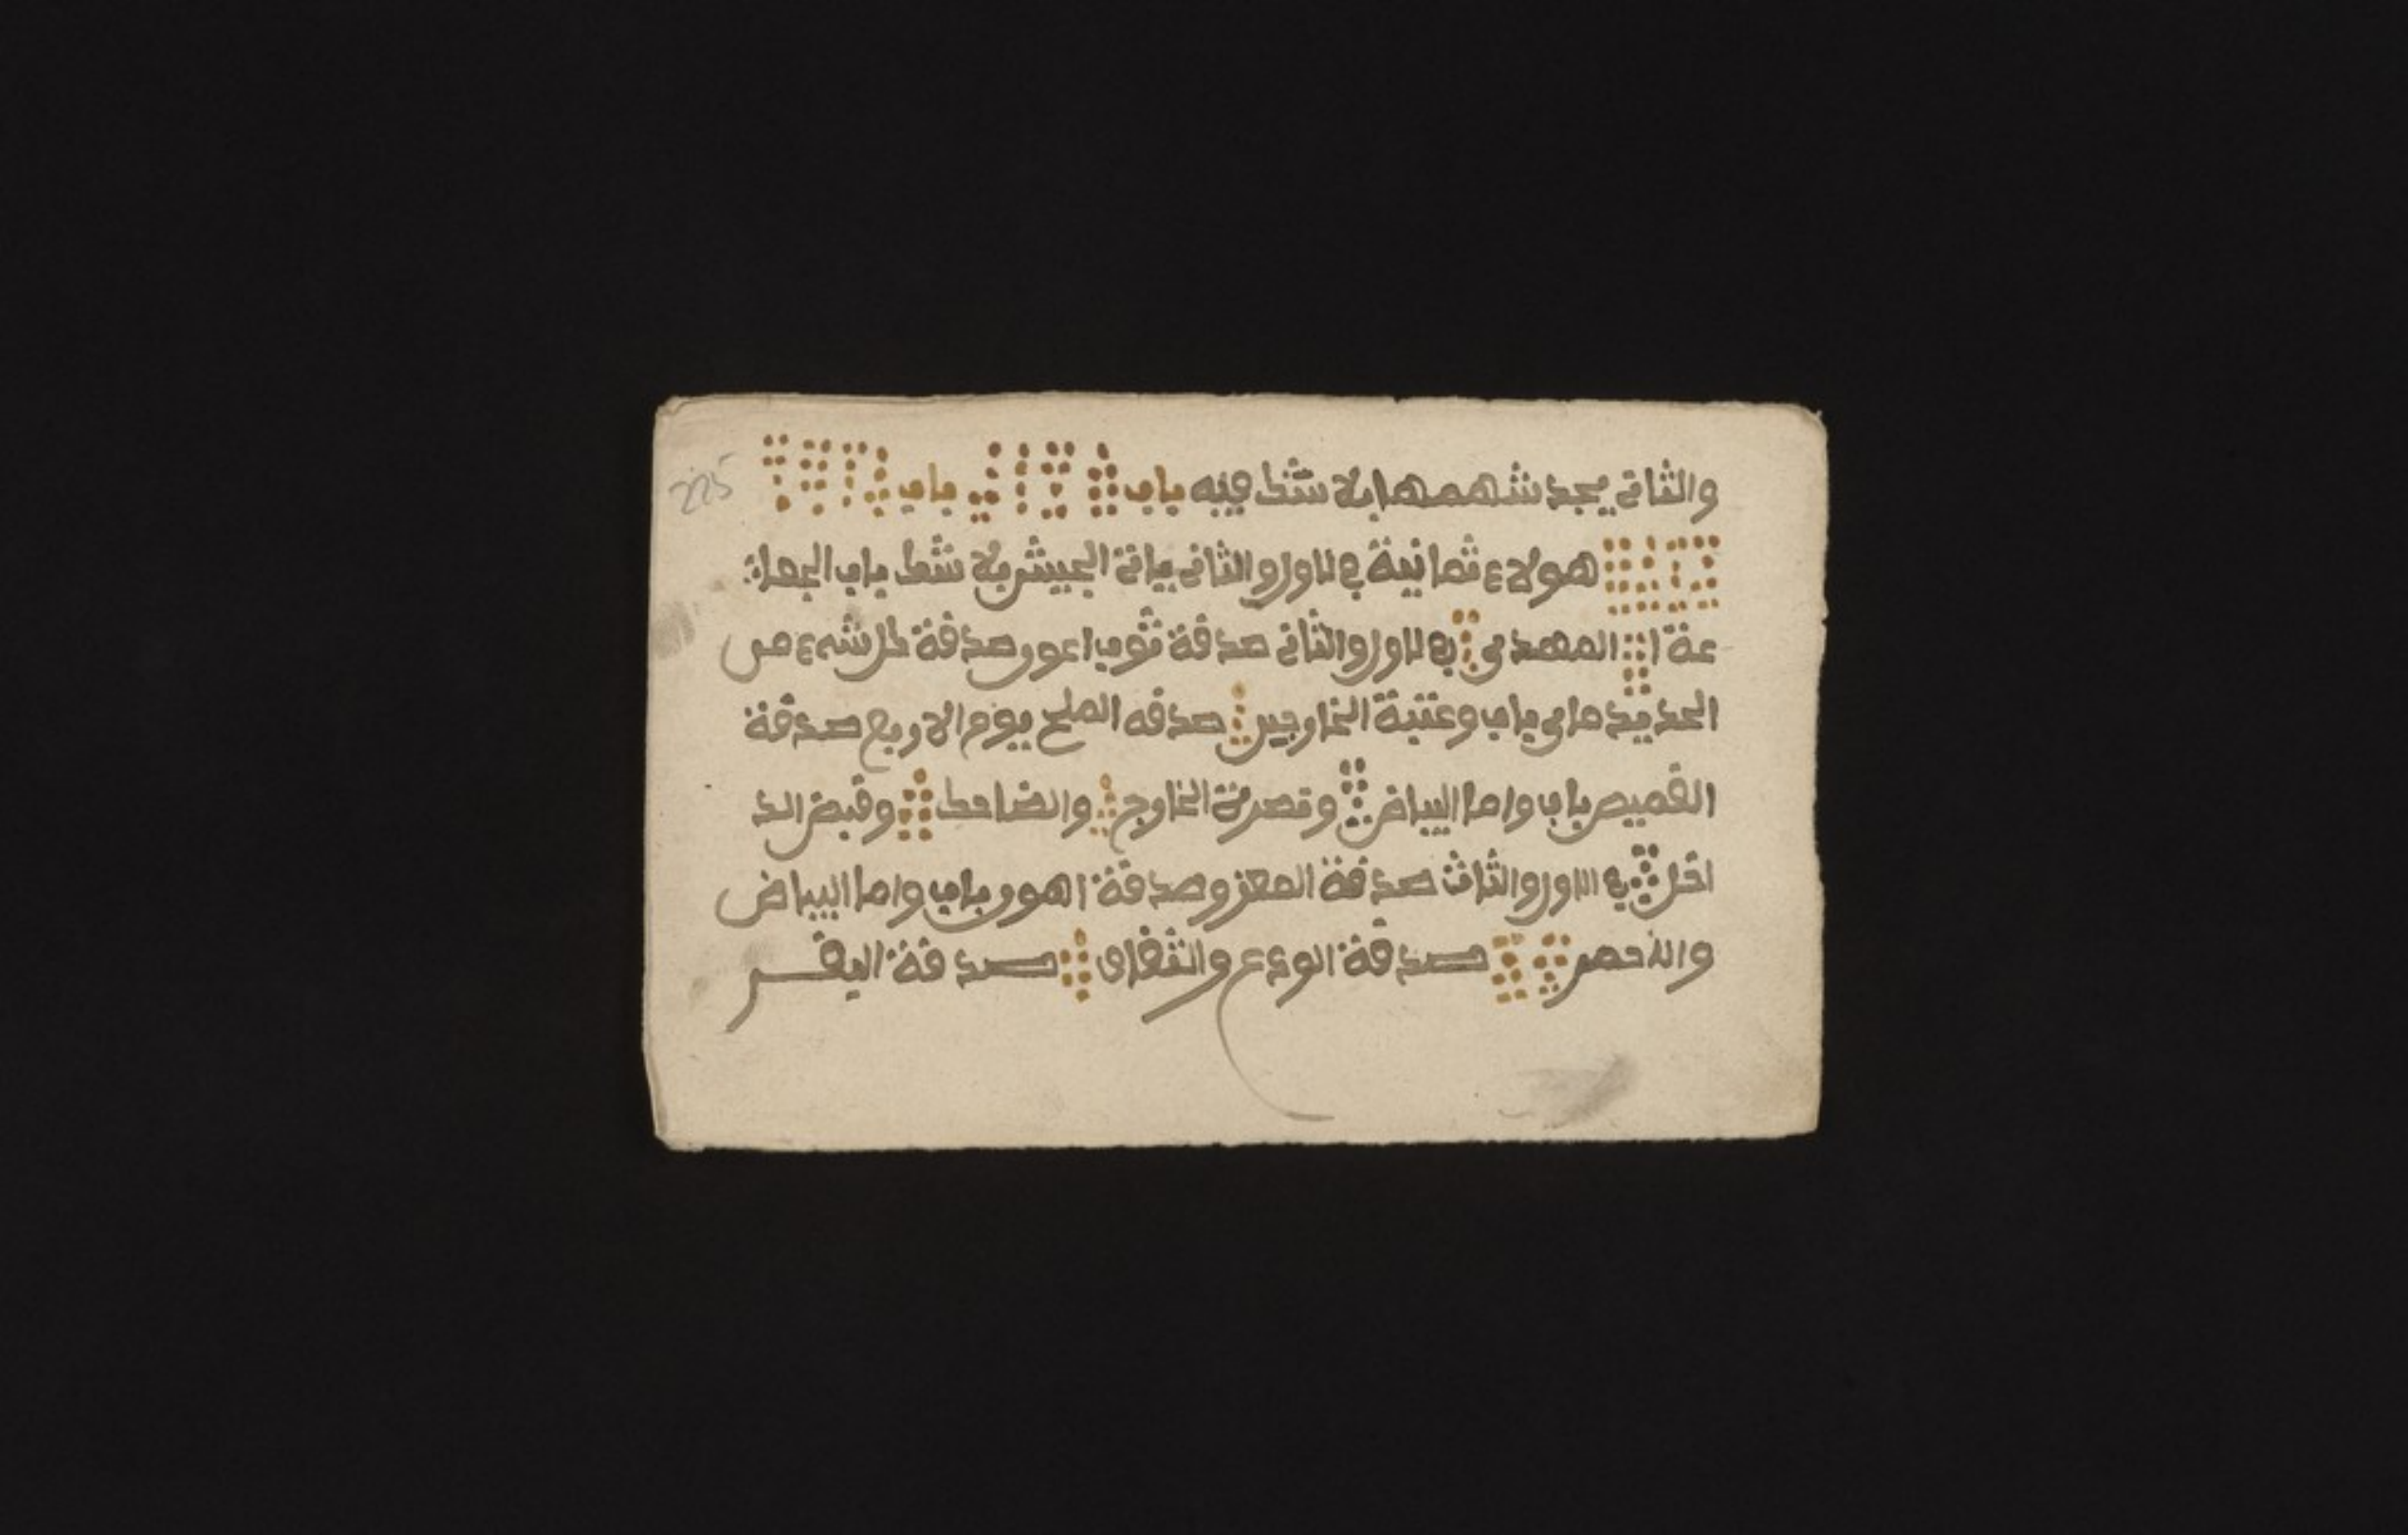 والثاني يجد شهمها بلا شك فيه باب باب 225
هولاء ثمانية في الاول والثاني ياتي الجيش بلا شك باب الجما
عة المهدي في الاول والثاني صدقة ثوب اعور صدقة كل شيء من
الحديد ما في باب وعتبة الخارجين صدقه الملح يوم الاربع صدقة
القميص باب واما البياض ونصرة الخارج والضاحك وقبض الد
اخل في الاول والثالث صدقة المعز وصدقة اهور باب واما البياض
والاحمر صدقة الودع صدقة البقر